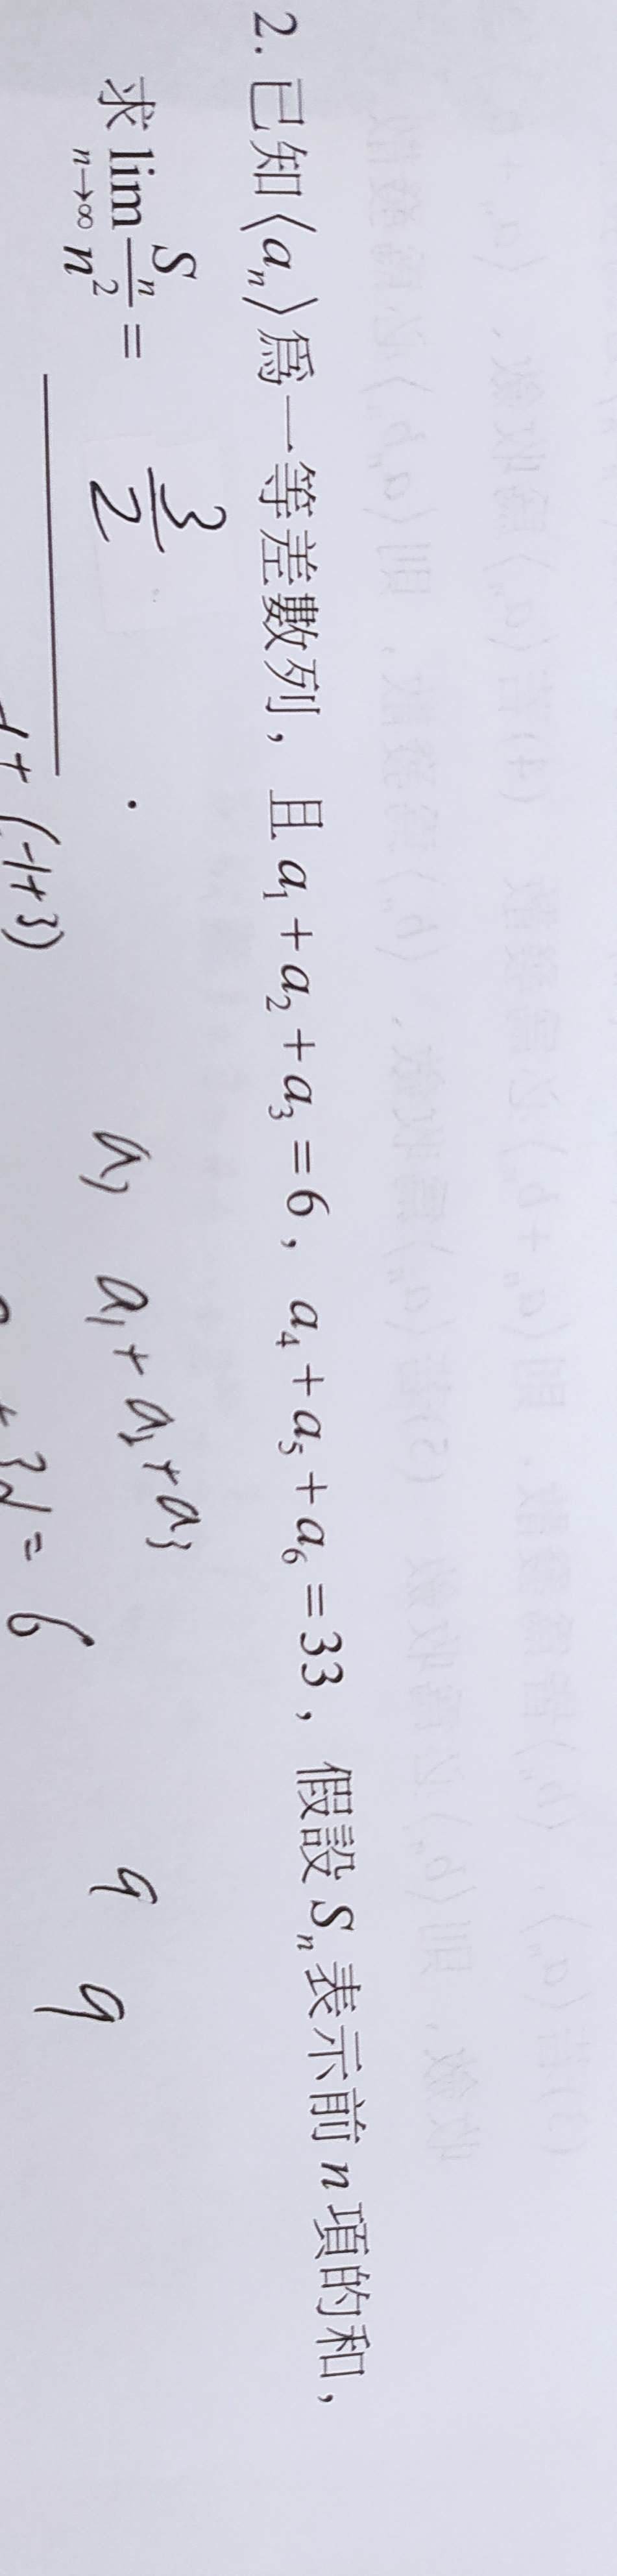 2. 已知⟨aₙ⟩為一等差數列，且 a₁+a₂+a₃=6，a₄+a₅+a₆=33，假設 Sₙ 表示前 n 項的和，
求 lim n→∞ Sₙ/n² = 3/2 .
a, a₁+a₂+a₃ 9 9
(-1+3)
+3d=6